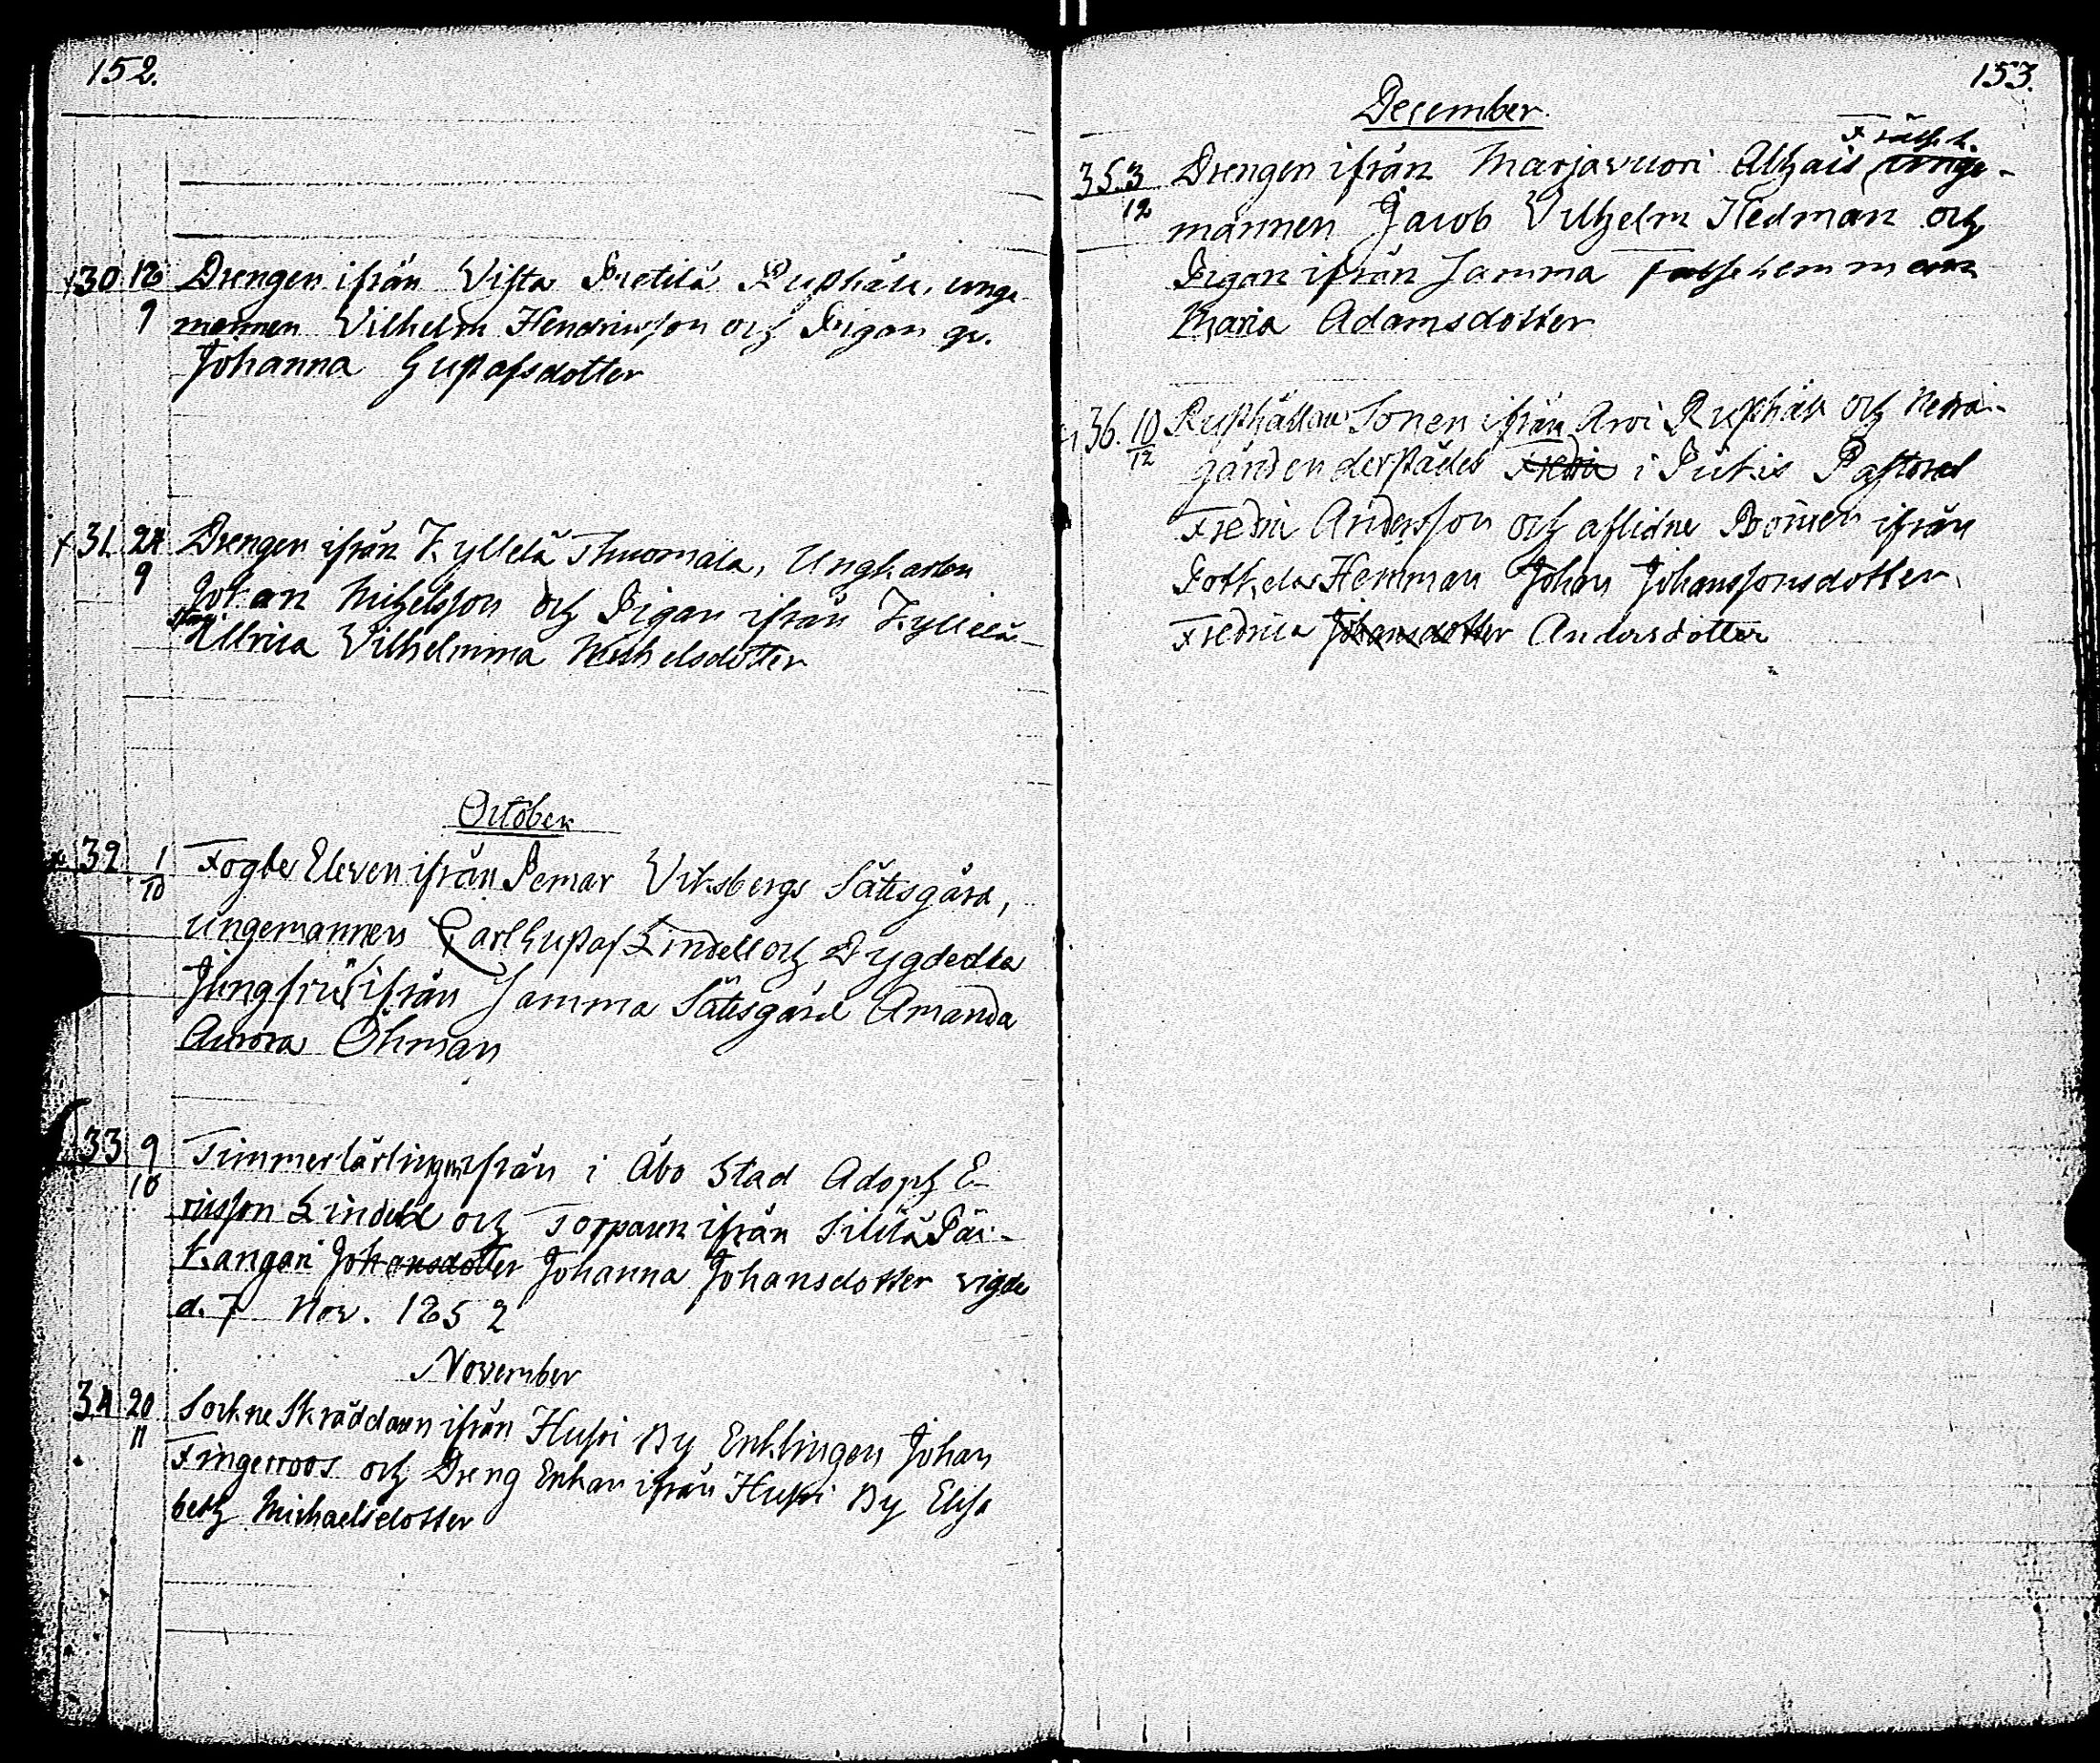 152.
+ 30 12/9 Drengen ifrån Vista Pretilä Rusthåll, unge
mannen Vilhelm Hendricsson och Pigan qv.
Johanna Gustafsdotter
+ 31. 24/9 Drengen ifrån Kyllelä Thuomala, Ungkarlen
Johan Michelsson och Pigan ifrån Kyllelä
Ullrica Vilhelmina Michelsdotter
October
+ 32 1/10 Fogde Eleven ifrån Pemar Viksbergs Sätesgård,
ungemannen Carl Gustaf Lindell och Dygdedla
Jungfrun ifrån Samma Sätesgård Amanda
Aurora Öhman
33 9/10 Timmerlärlingen ifrån i Åbo Stad Adoph E-
ricsson Lindell och Torparen ifrån Sililä Päi-
kangari Johansdotter Johanna Johansdotter vigde
d. 7 Nov. 1852
November
34 20/11 Sockne Skräddaren ifrån Huson By Enklingen Johan
Fingerroos och Dreng Enkan ifrån By Elisa
beth Michaelsdotter
153.
December.
35. 3/12 Drengen ifrån Marjavuori Allhais, unge-
mannen Jacob Vilhelm Hedman och
Pigan ifrån Samma hemman
Maria Adamsdotter
36. 10/12 Rusthållare Sonen ifrån Arvi Rusthåll och
gården derstädes Fredric i Piikis Pastorat
Fredric Andersson och aflidne Bonden ifrån
Hemman Johan Johanssonsdotter
Fredrica Johansdotter Andersdotter